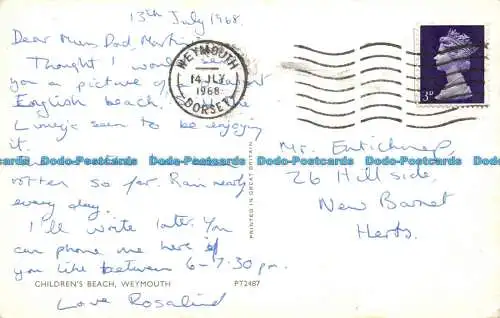 13th July 1968.
Dear Mum, Dad, Martin
Thought I would send
you a picture of
English beach.
seem to be enjoying
it.
rotten so far. Rain nearly
every day.
I'll write later. You
can phone me here if
you like between 6-7.30 pm.
Love Rosalind
CHILDREN'S BEACH, WEYMOUTH
PT2487
PRINTED IN GREAT BRITAIN
WEYMOUTH
14 JLY
1968
DORSET
3D
Mr. Entickner,
26 Hillside,
New Barnet
Herts.
Dodo-Postcards Dodo-Postcards Dodo-Postcards Dodo-Postcards Dodo-Postcards